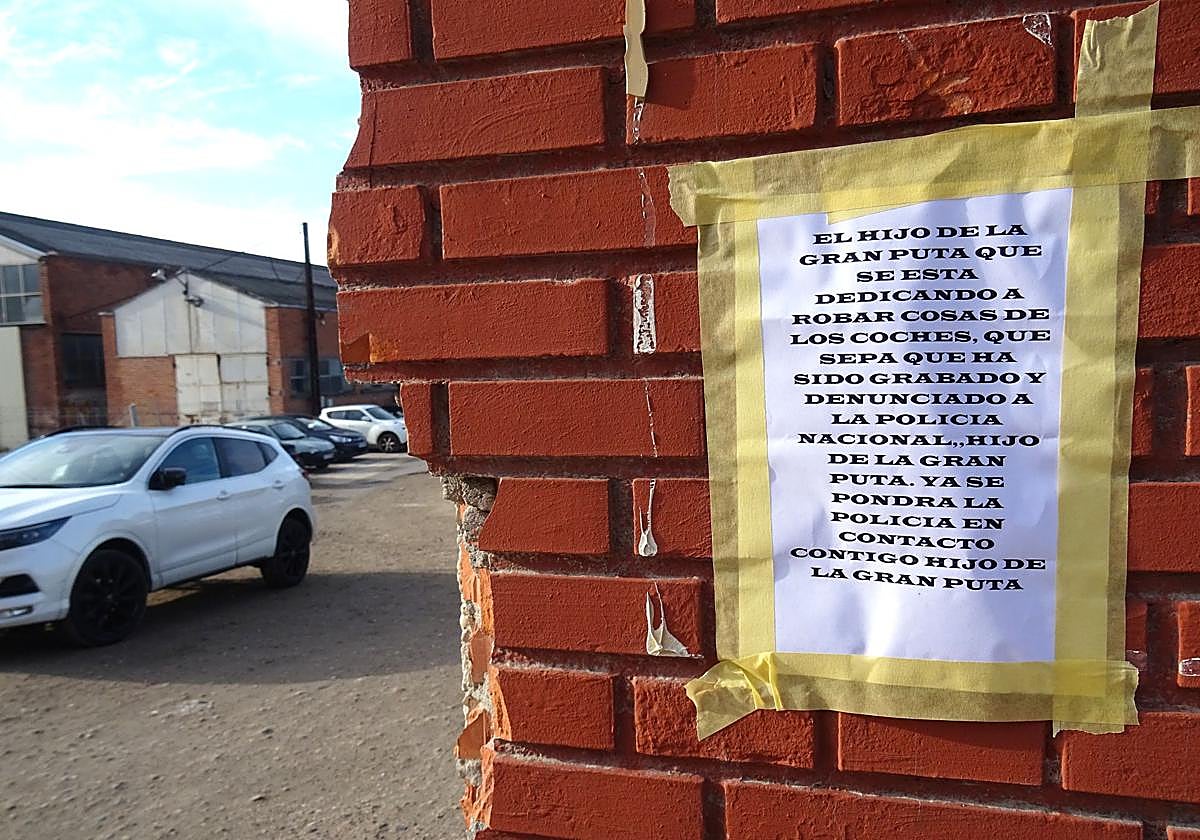 EL HIJO DE LA
GRAN PUTA QUE
SE ESTA
DEDICANDO A
ROBAR COSAS DE
LOS COCHES, QUE
SEPA QUE HA
SIDO GRABADO Y
DENUNCIADO A
LA POLICIA
NACIONAL,,HIJO
DE LA GRAN
PUTA. YA SE
PONDRA LA
POLICIA EN
CONTACTO
CONTIGO HIJO DE
LA GRAN PUTA